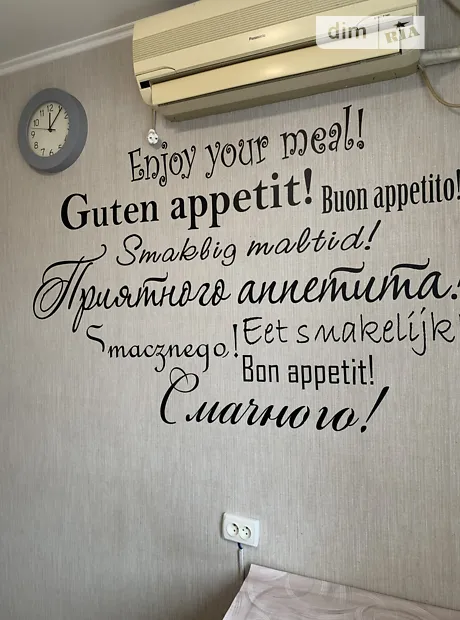 dim RIA
Panasonic
12
1
11
10
9
Enjoy your meal!
Guten appetit!
Buon appetito!
Smaklig maltid!
Приятного аппетита!
Smacznego!
Eet smakelijk
Bon appetit!
Смачного!